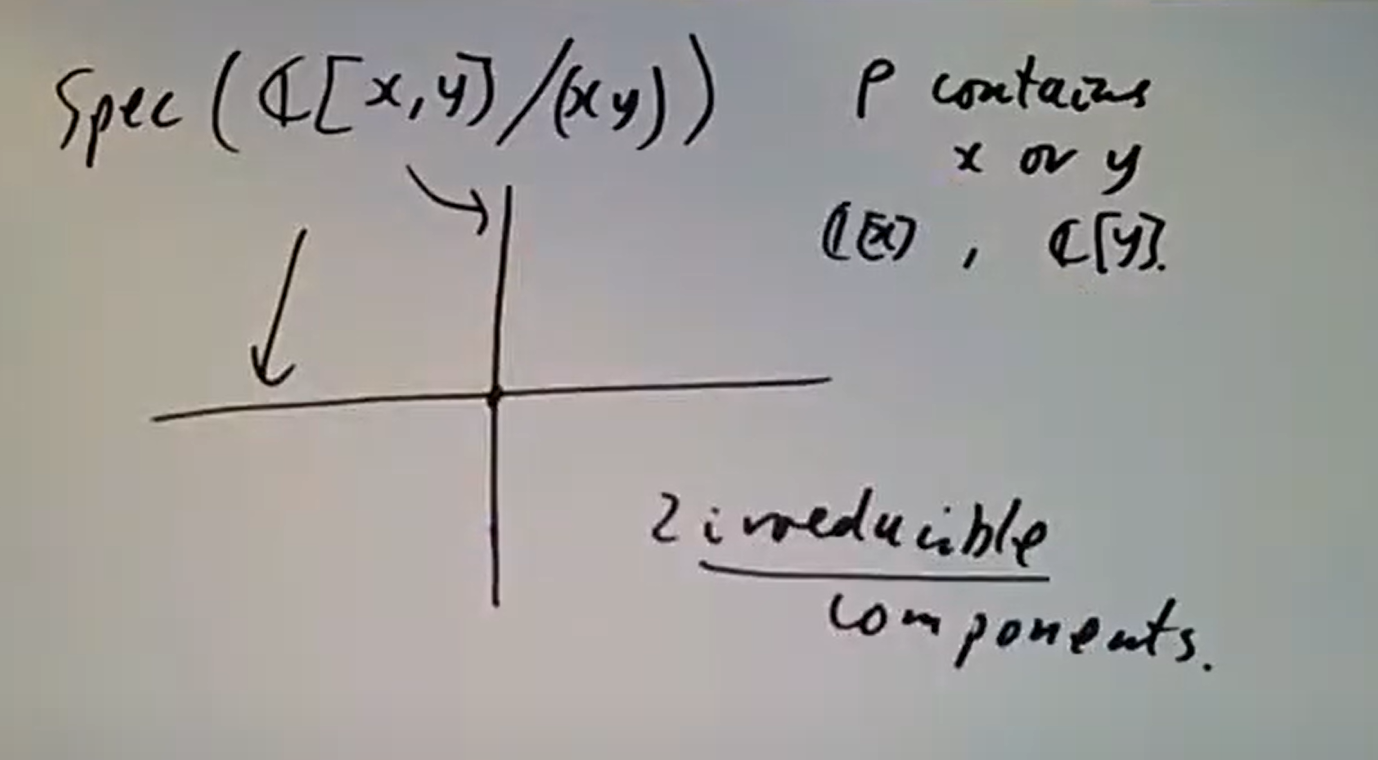 Spec (ℂ[x,y]/(xy))
P contains
x or y
ℂ[x], ℂ[y].
2 irreducible
components.